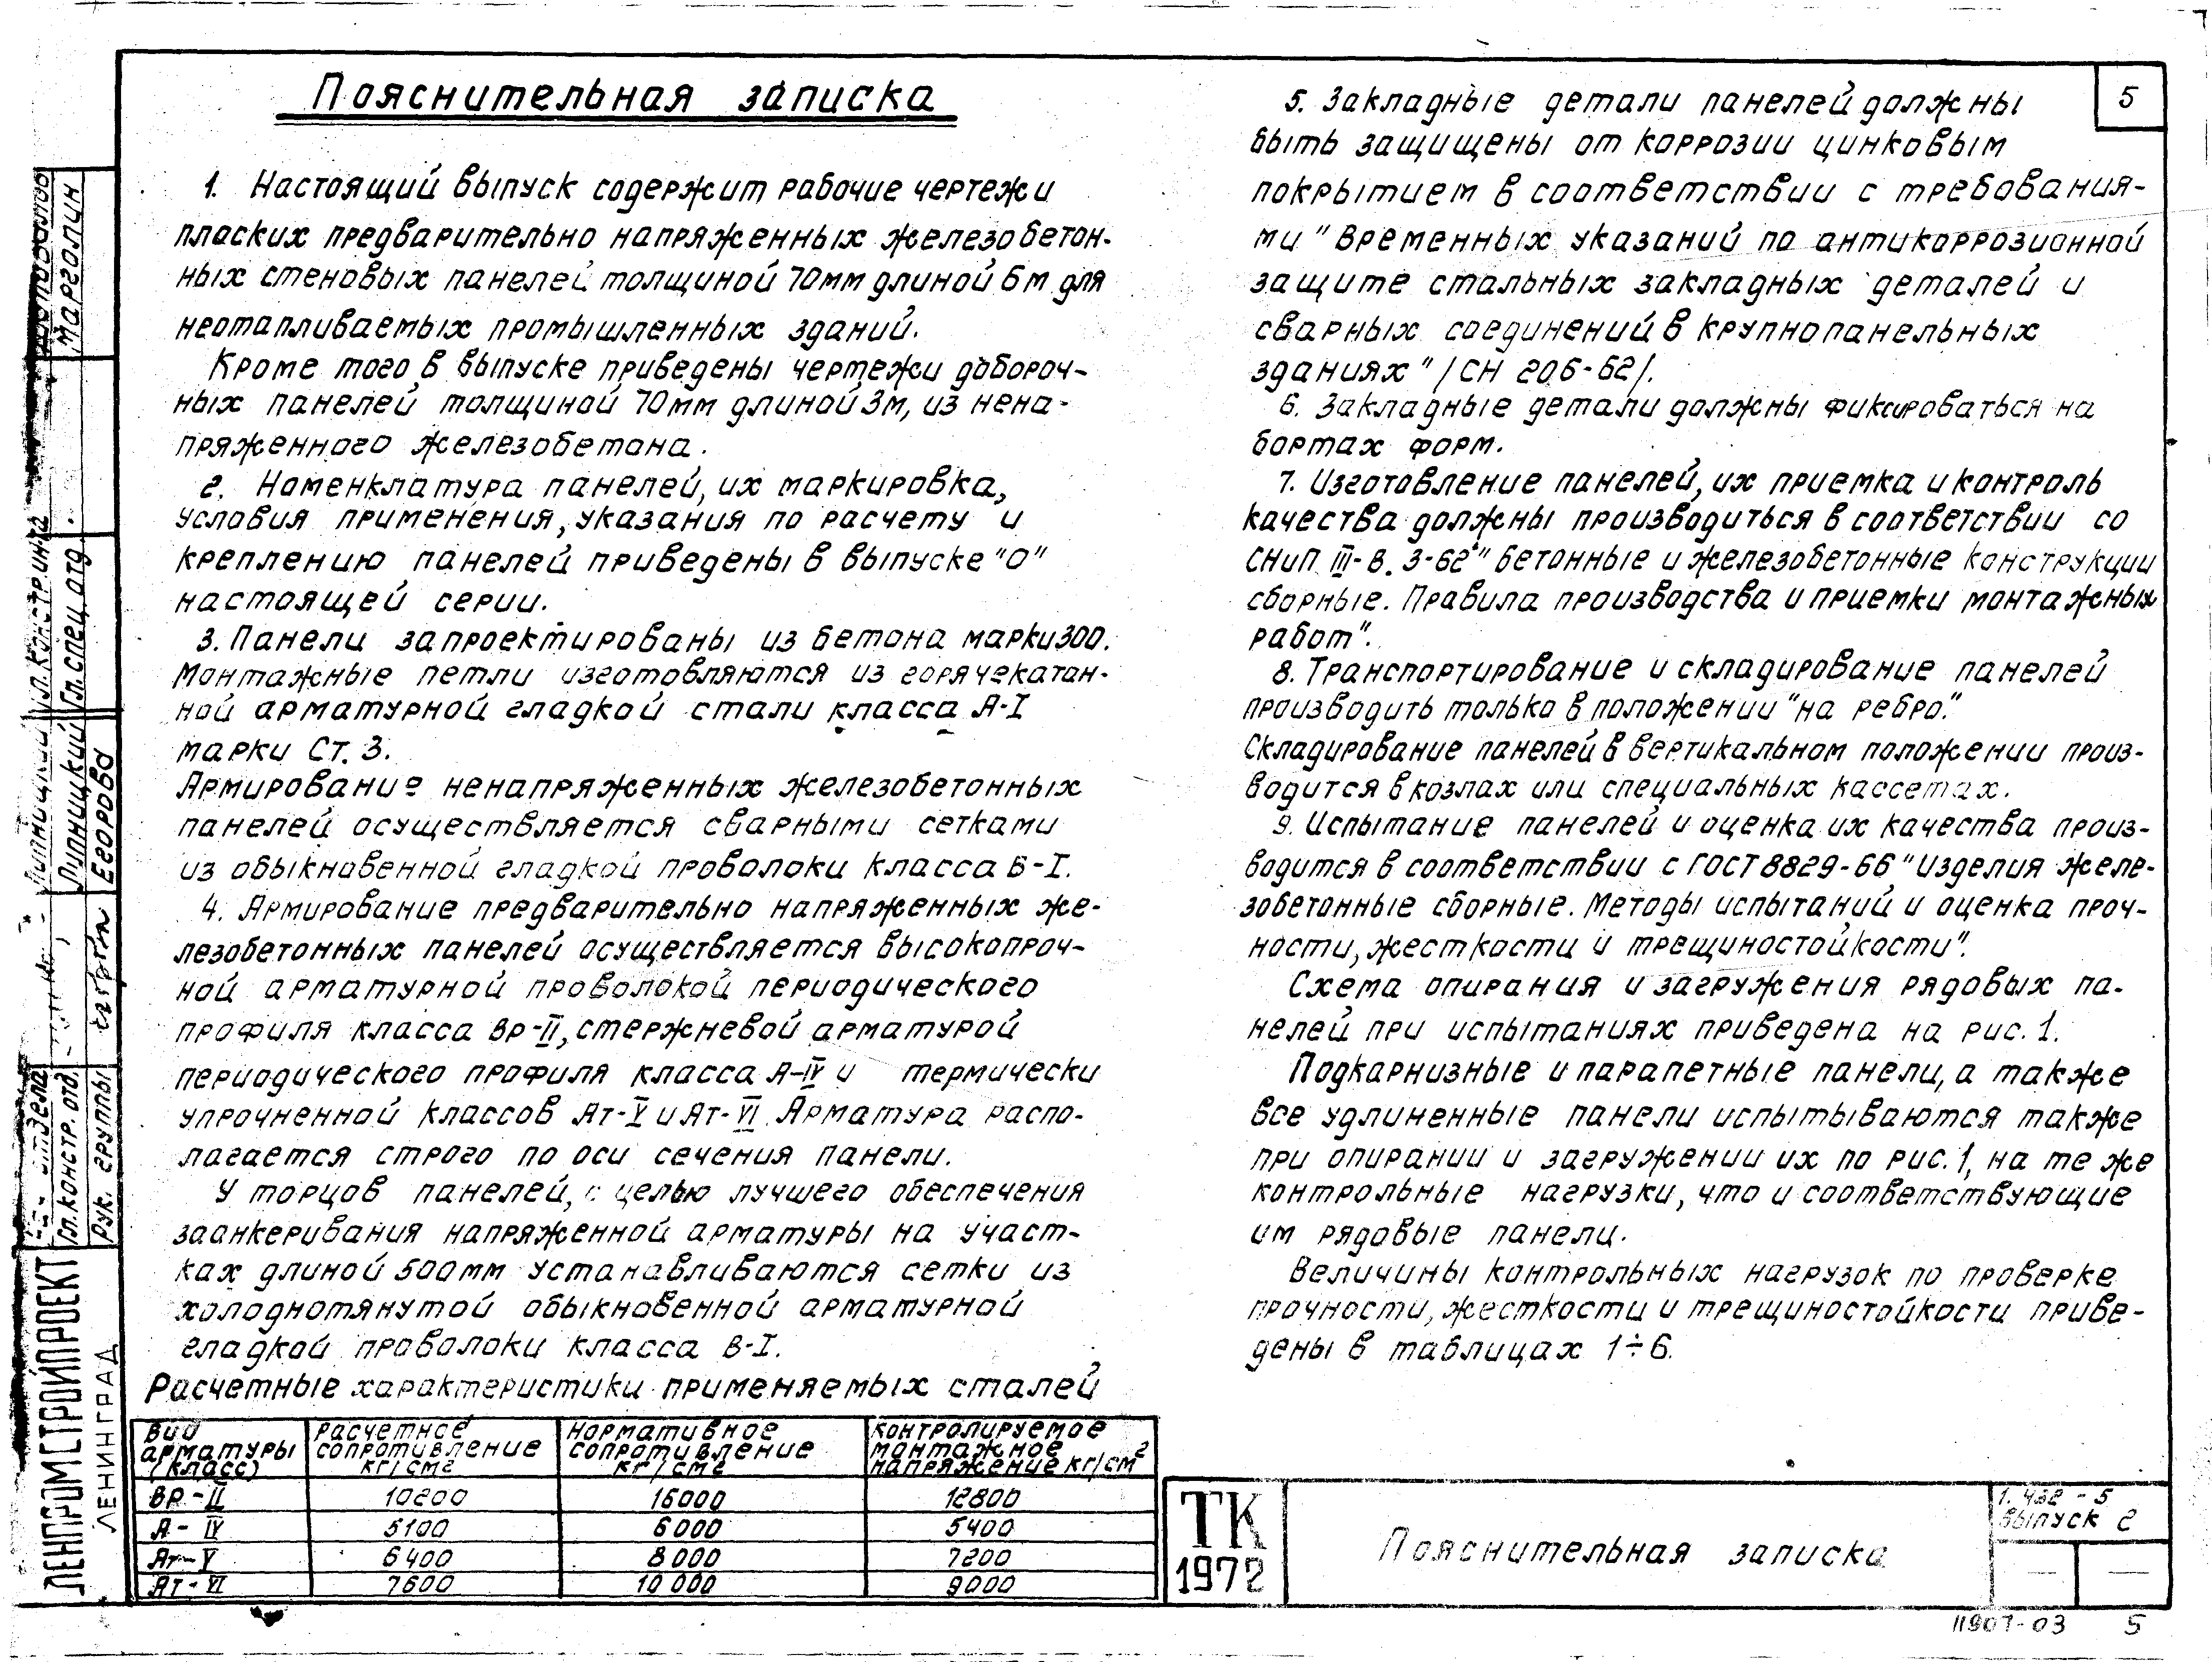 Пояснительная записка
1. Настоящий выпуск содержит рабочие чертежи
плоских предварительно напряженных железобетон-
ных стеновых панелей толщиной 70мм длиной 6м для
неотапливаемых промышленных зданий.
Кроме того, в выпуске приведены чертежи добороч-
ных панелей толщиной 70мм длиной 3м, из нена-
пряженного железобетона.
2. Номенклатура панелей, их маркировка,
условия применения, указания по расчету и
креплению панелей приведены в выпуске "0"
настоящей серии.
3. Панели запроектированы из бетона марки 300.
Монтажные петли изготовляются из горячекатан-
ной арматурной гладкой стали класса А-I
марки Ст. 3.
Армирование ненапряженных железобетонных
панелей осуществляется сварными сетками
из обыкновенной гладкой проволоки класса В-I.
4. Армирование предварительно напряженных же-
лезобетонных панелей осуществляется высокопроч-
ной арматурной проволокой периодического
профиля класса Вр-II, стержневой арматурой
периодического профиля класса А-IV и термически
упрочненной классов Ат-V и Ат-VI. Арматура распо-
лагается строго по оси сечения панели.
У торцов панелей, с целью лучшего обеспечения
заанкеривания напряженной арматуры на участ-
ках длиной 500мм устанавливаются сетки из
холоднотянутой обыкновенной арматурной
гладкой проволоки класса В-I.
Расчетные характеристики применяемых сталей
Вид арматуры (класс) Расчетное сопротивление кг/см2 Нормативное сопротивление кг/см2 Контролируемое монтажное напряжение кг/см2
Вр-II 10200 16000 12800
А-IV 5100 6000 5400
Ат-V 6400 8000 7200
Ат-VI 7600 10 000 9000
5
5. Закладные детали панелей должны
быть защищены от коррозии цинковым
покрытием в соответствии с требования-
ми "Временных указаний по антикоррозионной
защите стальных закладных деталей и
сварных соединений в крупнопанельных
зданиях" /СН 206-62/.
6. Закладные детали должны фиксироваться на
бортах форм.
7. Изготовление панелей, их приемка и контроль
качества должны производиться в соответствии со
СНиП III-В. 3-62* "Бетонные и железобетонные конструкции
сборные. Правила производства и приемки монтажных
работ".
8. Транспортирование и складирование панелей
производить только в положении "на ребро."
Складирование панелей в вертикальном положении произ-
водится в козлах или специальных кассетах.
9. Испытание панелей и оценка их качества произ-
водится в соответствии с ГОСТ 8829-66 "Изделия желе-
зобетонные сборные. Методы испытаний и оценка проч-
ности, жесткости и трещиностойкости".
Схема опирания и загружения рядовых па-
нелей при испытаниях приведена на рис. 1.
Подкарнизные и парапетные панели, а также
все удлиненные панели испытываются также
при опирании и загружении их по рис. 1, на те же
контрольные нагрузки, что и соответствующие
им рядовые панели.
Величины контрольных нагрузок по проверке
прочности, жесткости и трещиностойкости приве-
дены в таблицах 1÷6.
ТК
1972
Пояснительная записка
1. 432 - 5
выпуск 2
11907-03 5
ЛЕНПРОМСТРОЙПРОЕКТ
ЛЕНИНГРАД
Гл. констр. отд.
Рук. группы
Липницкий
Егорова
Гл. констр. ин-та
Гл. спец. отд.
Марголин